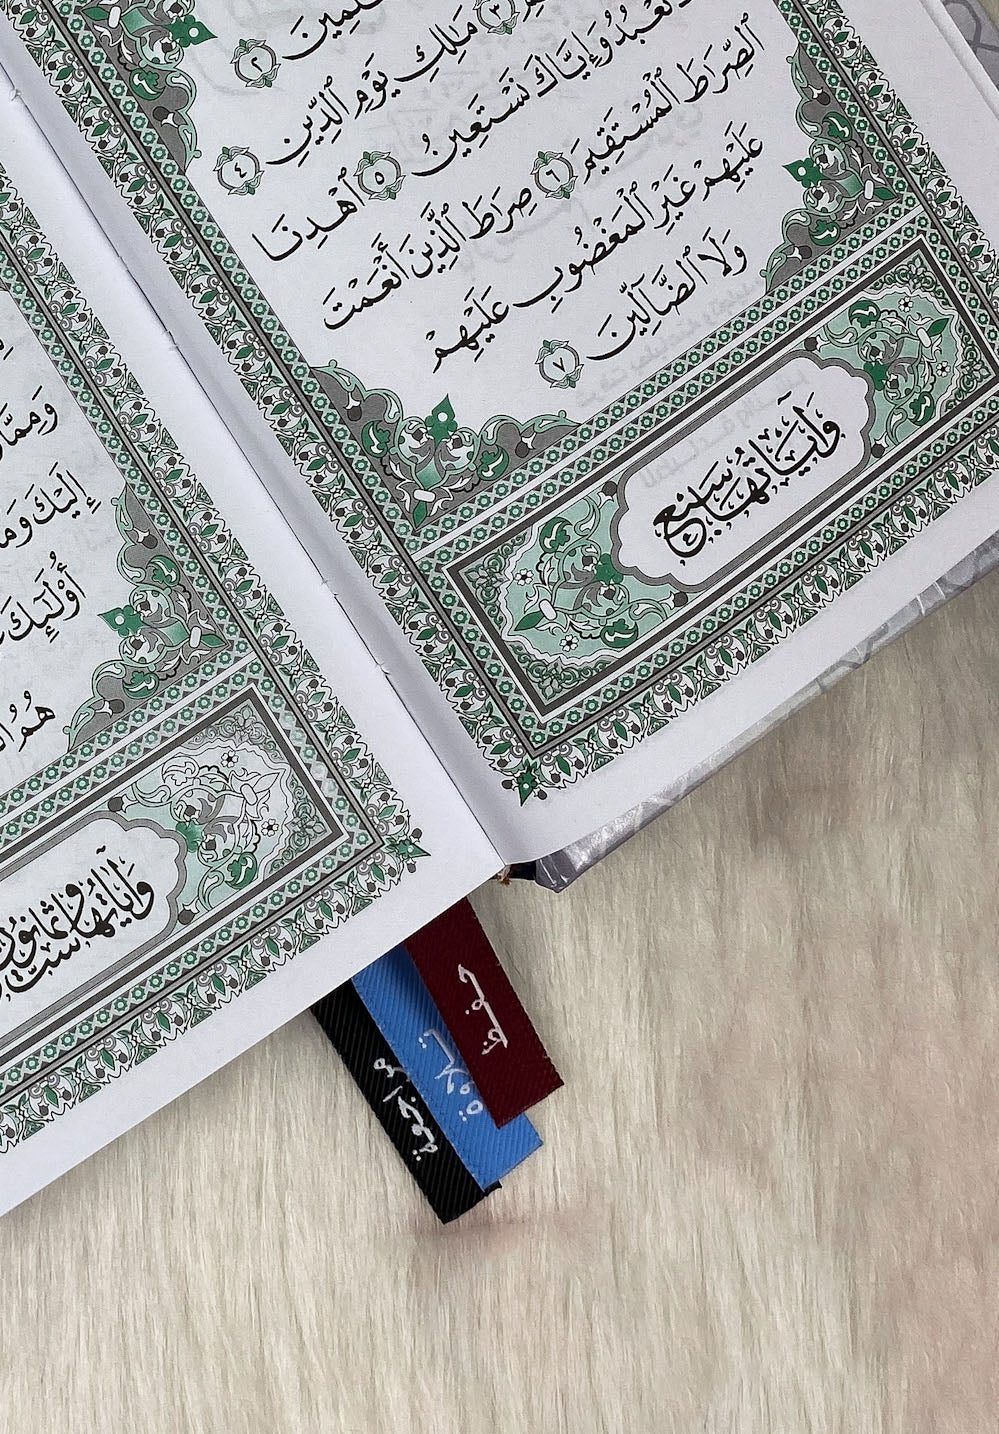 ـلَمِينَ ٢
٣ مَـٰلِكِ يَوْمِ ٱلدِّينِ ٤
نَعْبُدُ وَإِيَّاكَ نَسْتَعِينُ ٥ ٱهْدِنَا
ٱلصِّرَٰطَ ٱلْمُسْتَقِيمَ ٦ صِرَٰطَ ٱلَّذِينَ أَنْعَمْتَ
عَلَيْهِمْ غَيْرِ ٱلْمَغْضُوبِ عَلَيْهِمْ
وَلَا ٱلضَّآلِّينَ ٧
وَآيَاتُهَا سَبْعٌ
وَمِمَّا
إِلَيْكَ وَمَا
أُو۟لَـٰٓئِكَ
هُمُ
وَآيَاتُهَا سِتٌّ وَثَمَانُونَ
حفظ
تلاوة
مراجعة